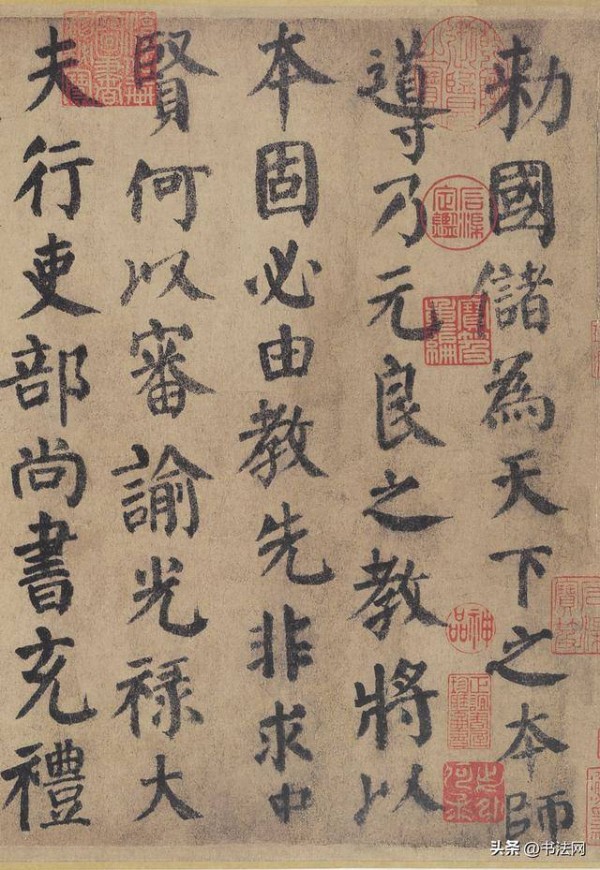 勅國儲為天下之本師
導乃元良之教將以
本固必由教先非求中
賢何以審諭光祿大
夫行吏部尚書充禮
神品
头条 @书法网